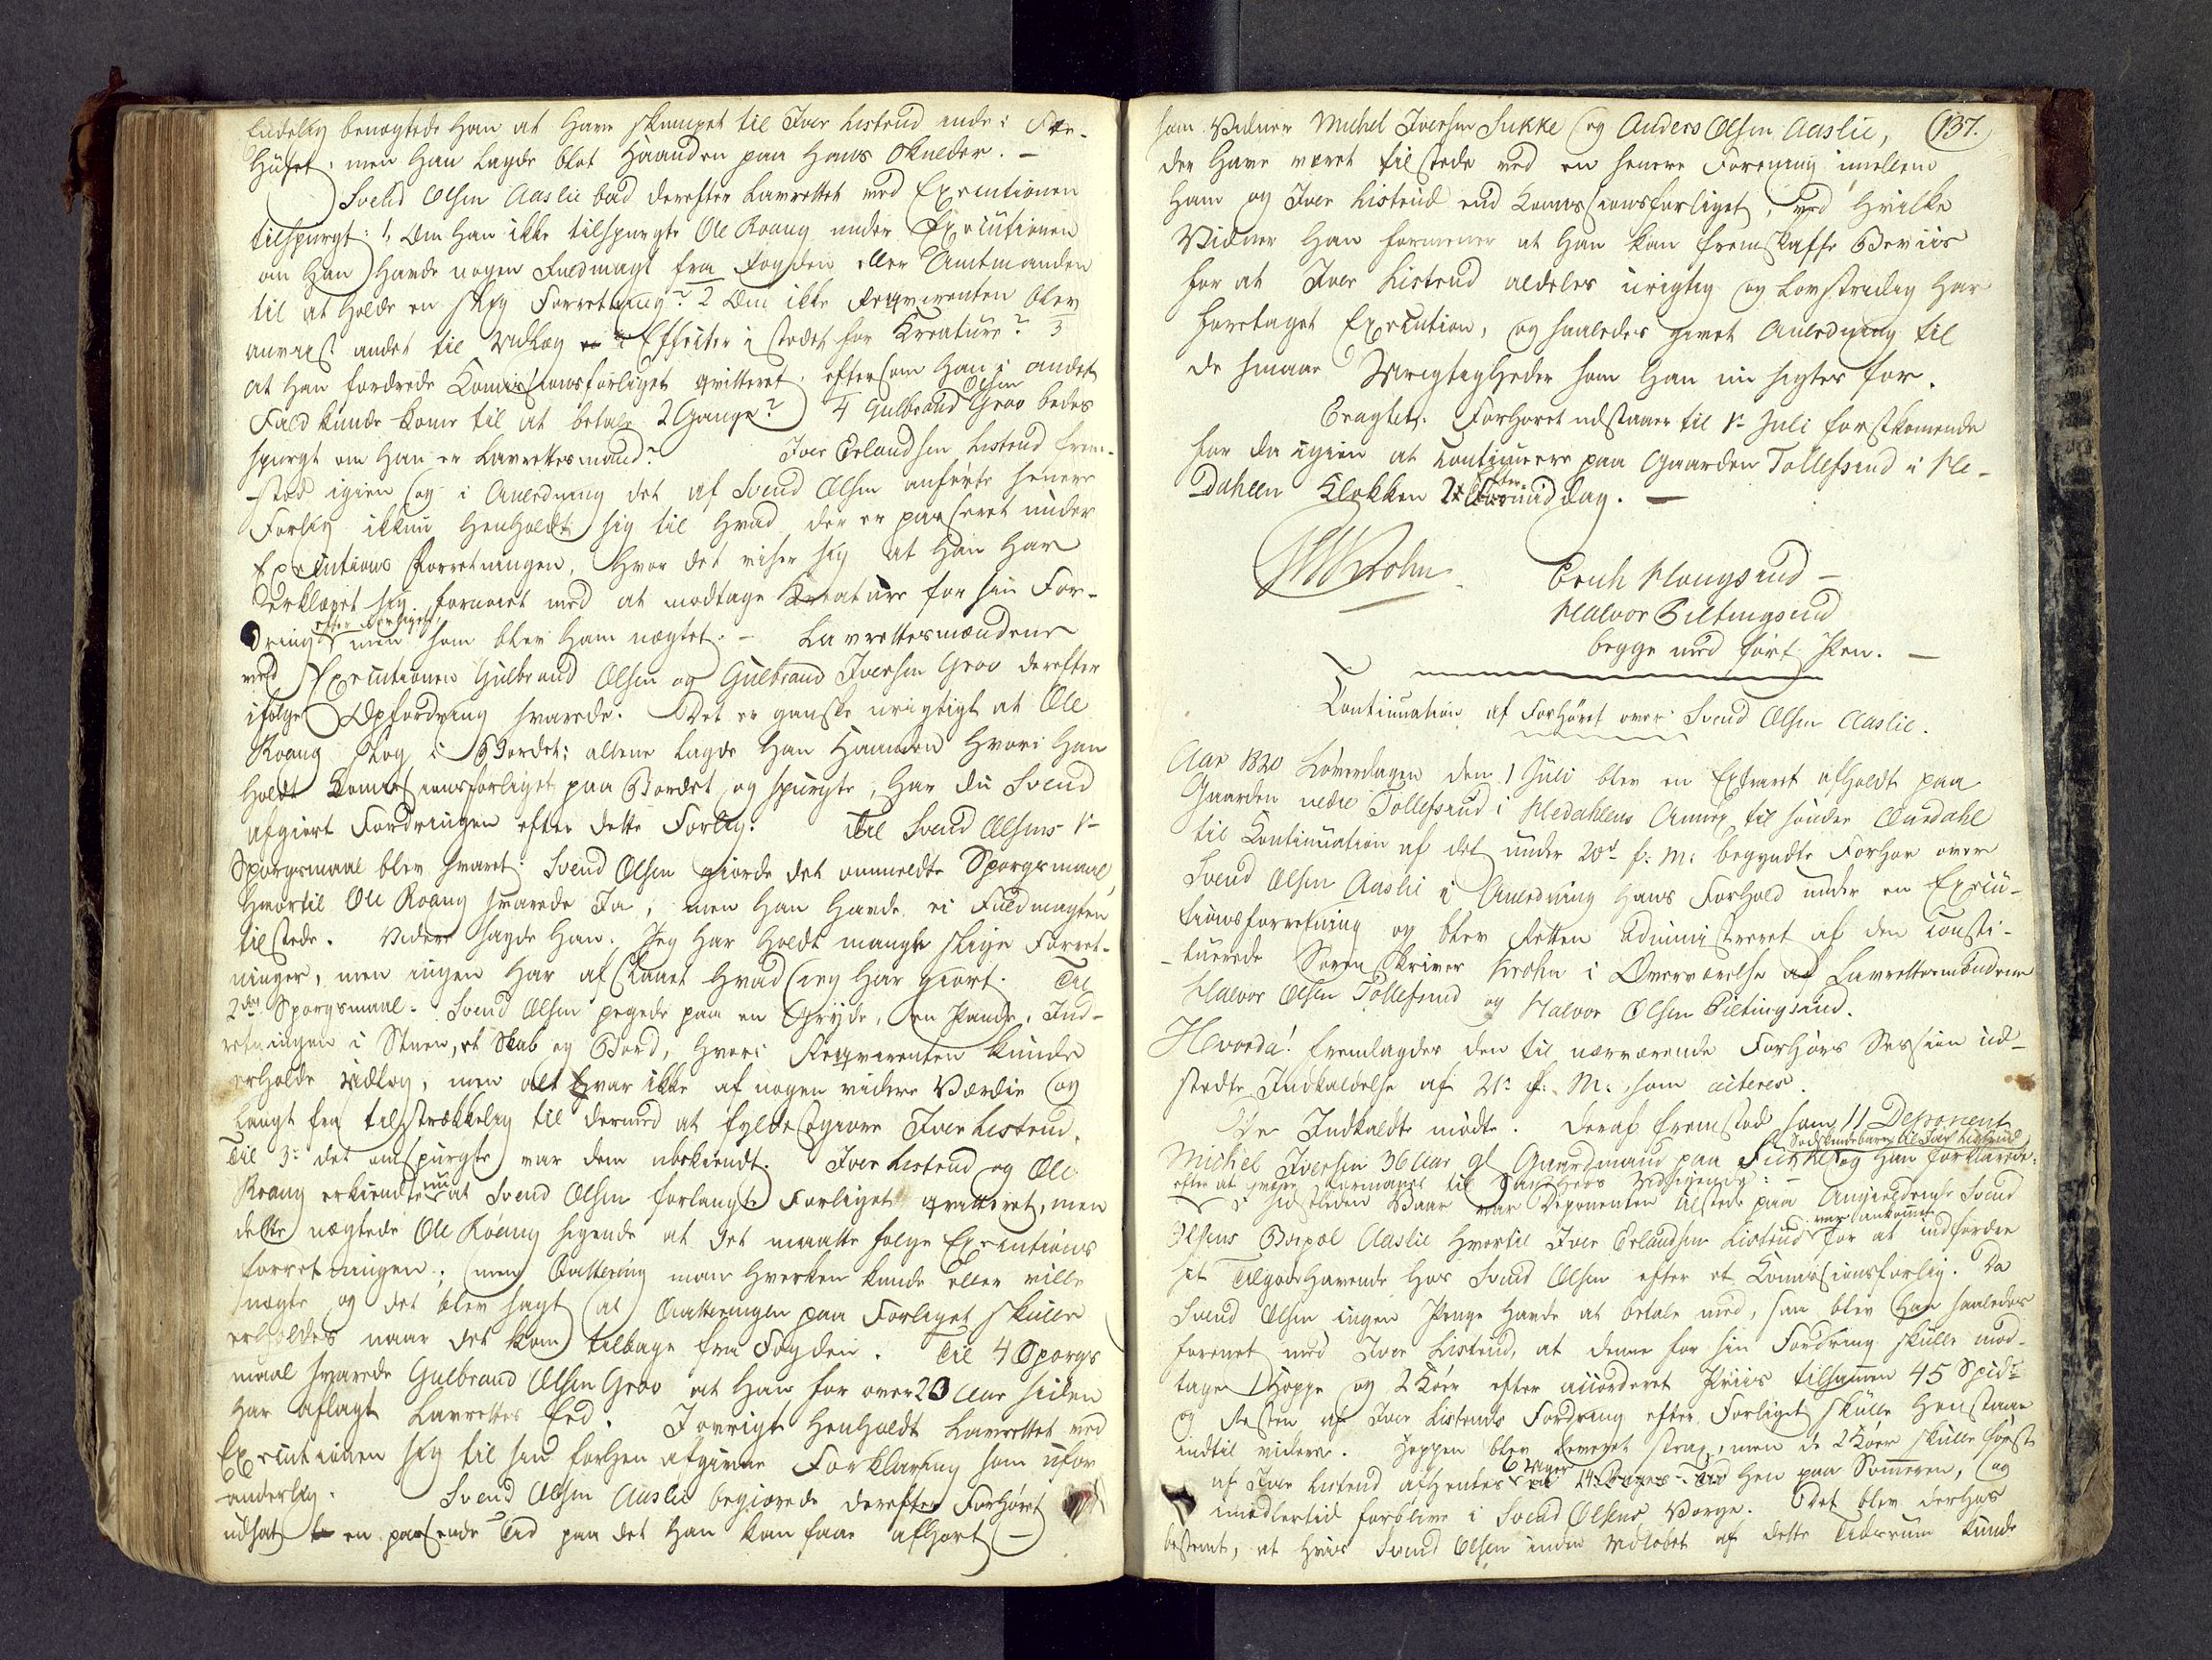 Endelig benegtede Han at Have skumpet til Iver Listrud inde i For-
Huset, men Han lagde blot Haanden paa Hans Skulder. –
Svend Olsen Aaslie bad derefter Lavrettet ved Executionen
tilspurgt: 1, Om Han ikke tilspurgte Ole Roang under Executionen
om Han Havde nogen Fuldmagt fra Fogden eller Amtmanden
til at Holde en slig Forretning? 2 Om ikke Reqvirenten blev
anviist andet til Udlæg i Effecter i stedet for Kreature? 3
at Han fordrede Comissionsforliget qvitteret, eftersom Han i andet
Fald kunde komme til at betale 2 Gange? 4 Gulbrand Olsen Grov bedes
spurgt om Han er Lavrettesmand? Iver Erlandsen Listrud frem-
stod igien og i Anledning det af Svend Olsen anførte senere
Forlig ikkun Henholdt sig til Hvad der er passeret under
Executions Forretningen, Hvor det viser sig at Han Har
erklæret sig fornøiet med at modtage Kreature for sin For-
dring efter Forliget men som blev Ham nægtet. – Lavrettesmændene
ved Executionen Gulbrand Olsen og Gulbrand Iversen Grov derefter
ifølge Opfordring svarede. Det er ganske urigtigt at Ole
Roang slog i Bordet: allene lagde Han Haanden Hvori Han
Holdt Comissionsforliget paa Bordet og spurgte, Har du Svend
afgiort Fordringen efter dette Forlig: Til Svend Olsens 1te
Spørgsmaal blev svaret: Svend Olsen giorde det ommeldte Spørgsmaal
Hvortil Ole Roang svarede Ja, men Han Havde ei Fuldmagten
tilstede. Videre sagde Han: Jeg Har Holdt mange slige Forret-
ninger, men ingen Har afslaaet Hvad jeg Har giort. Til
2det Spørgsmaal: Svend Olsen pegede paa en Gryde, en Pande, Ind-
retningen i Stuen, et Skab og Bord, Hvori Reqvirenten kunde
erholde Udlæg, men alt var ikke af nogen videre Værdie og
langt fra tilstrækkelig til dermed at fyldestgiøre Iver Listrud.
Til 3: det omspurgte var dem ubekiendt. Iver Listrud og Ole
Roang erkiendte nu at Svend Olsen forlangte Forliget qvitteret, men
dette nægtede Ole Roang sigende at det maatte følge Executions
forretningen; men Qvittering man Hverken kunde eller ville
nægte og det blev sagt at Qvitteringen paa Forliget skulle
erholdes naar det kom tilbage fra Fogden. Til 4 Spørgs
maal svarede Gulbrand Olsen Grov at Han for over 20 Aar siden
Har aflagt Lavrettes Eed. I øvrigt Henholdt Lavrettet ved
Executionen sig til sin forhen afgivne Forklaring som ufor
anderlig. Svend Olsen Aaslie begiærede derefter Forhøret
udsat en passende Tid paa det Han kan faae afhørt –
som Vidner Michel Iversen Sukke og Anders Olsen Aaslie, 137.
der Have været tilstede ved en senere Forening imellem
Ham og Iver Listrud end Comissionsforliget, ved Hvilke
Vidner Han formener at Han kan fremskaffe Beviis
for at Iver Listrud aldeles urigtig og Lovstridig Har
foretaget Execution, og saaledes givet Anledning til
de smaae Urigtigheder som Han nu sigtes for.
Eragtet: Forhøret udstaaer til 1te Juli førstkomende
for da igien at continuere paa Gaarden Tollefsrud i He-
Dahlen Klokken 2 Eftermiddag. –
Krohn Erich Haugsrud –
Halvor Piltingsrud
begge med ført Pen. –
Continuation af Forhøret over Svend Olsen Aaslie.
Aar 1820 Løverdagen den 1 Juli blev en Extraret afholdt paa
Gaarden nedre Tollefsrud i Hedahlens Annex til søndre Ourdahl
til Continuation af det under 20de f: M: begyndte Forhør over
Svend Olsen Aaslie i Anledning Hans Forhold under en Execu-
tionsforretning og blev Retten administreret af den consti-
tuerede Sorenskriver Krohn i Overværelse af Lavrettesmændene
Halvor Olsen Tollefsrud og Halvor Olsen Piltingsrud.
Hvorda! fremlagdes den til nærværende Forhørs Session ud-
stedte Indkaldelse af 21: f: M:, som acteres.
De Indkaldte mødte. Deraf fremstod som 11 Deponent
Michel Iversen 36 Aar gl Gaardmand paa Sukke Sødskendebarn til Iver Listrud og Han forklarede:
efter at være formanet til Sandheds Vidsigende: –
I sidstleden Vaar var Deponenten tilstede paa Angieldende Svend
Olsens Bopæl Aaslie Hvortil Iver Erlandsen Listrud var ankommet for at indfordre
sit Tilgodehavende Hos Svend Olsen efter et Comissionsforlig. Da
Svend Olsen ingen Penge Havde at betale med, saa blev Han saaledes
forenet med Iver Listrud, at denne for sin Fordring skulle mod-
tage 1 Hoppe og 2 Kiør efter accorderet Priis tilsammen 45 Spd
og Resten af Iver Listruds Fordring efter Forliget skulle Henstaae
indtil videre. Hoppen blev leveret strax, men de 2 Kiør skulle først
af Iver Listrud afhentes 6 Uger Hen paa Sommeren, og
imidlertid forblive i Svend Olsens Værge. Det blev derhos
bestemt, at Hvis Svend Olsen inden Udløbet af dette Tidsrum kunde